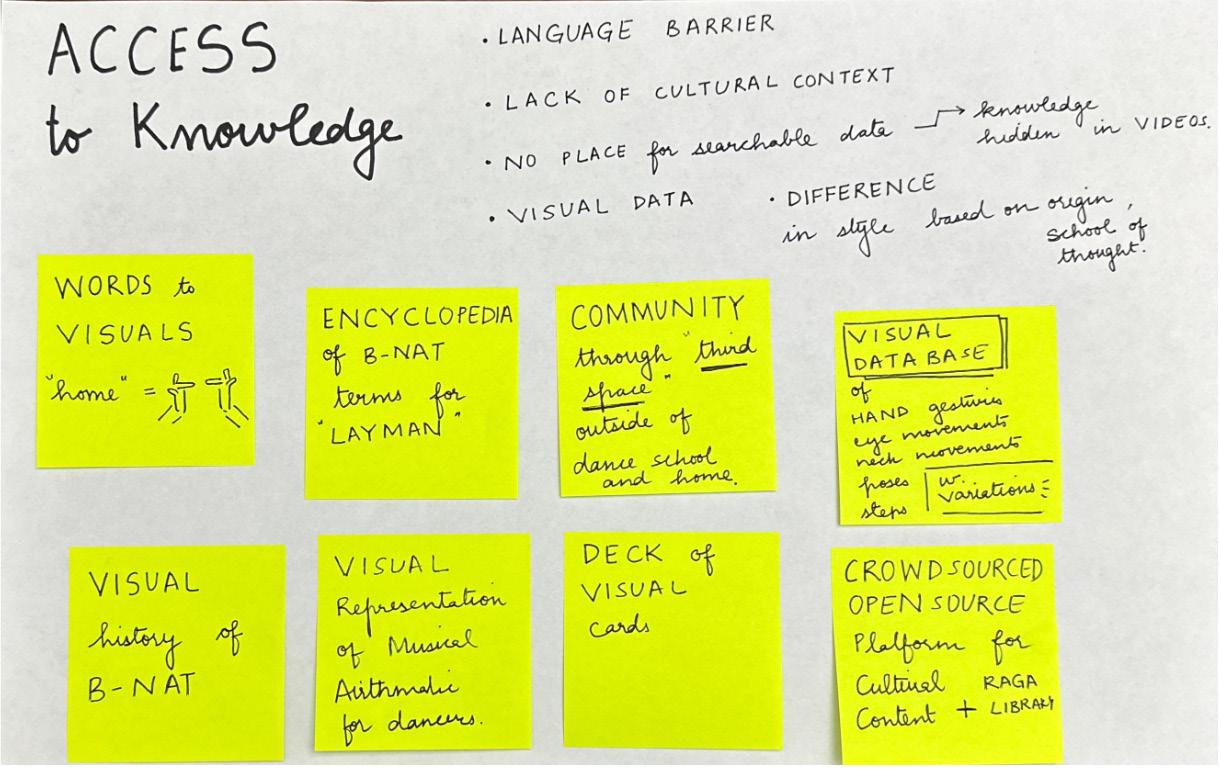 ACCESS
to Knowledge
• LANGUAGE BARRIER
• LACK OF CULTURAL CONTEXT
• NO PLACE for searchable data → knowledge
hidden in VIDEOS.
• VISUAL DATA
• DIFFERENCE
in style based on origin,
school of
thought.
WORDS to
VISUALS
"home" =
ENCYCLOPEDIA
of B-NAT
terms for
"LAYMAN"
COMMUNITY
through "third
space"
outside of
dance school
and home.
VISUAL
DATABASE
of
HAND gestures
eye movements
neck movements
poses
steps
w.
variations
VISUAL
history of
B-NAT
VISUAL
Representation
of Musical
Airthmatic
for dancers.
DECK of
VISUAL
cards
CROWDSOURCED
OPEN SOURCE
Platform for
Cultural RAGA
Content + LIBRARY